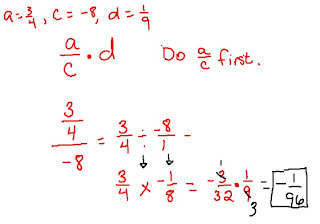 a=3/4, c=-8, d=1/9
a/c · d   Do a/c first.
(3/4)/-8 = 3/4 ÷ -8/1 =
3/4 × -1/8 = -3/32 · 1/9 = -1/96
1
3